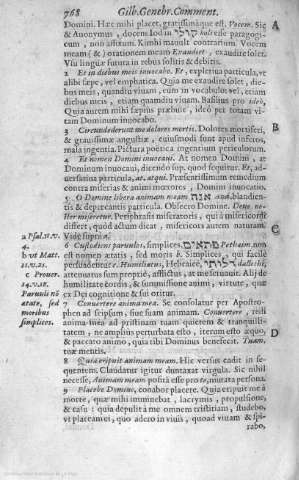 768 Gilb. Genebr. Comment.
Domini. Hæc mihi placet, gratissimáque est. Patrem. Sic
& Anonymus, docens Iod in קולי kolì esse paragogi-
cum, non affixum. Kimhi mauult contrarium. Vocem
meam (&) orationem meam Exaudiet, exaudire solet.
Vsu linguæ futura in rebus solitis & debitis.
2 Et in diebus meis inuocabo. Et, expletiua particula, vt
alibi sæpe, vel emphatica. Quia me exaudire solet, die-
bus meis, quandiu viuam, cum in vocabulo vel, etiam
diebus meis, etiam quamdiu viuam. Basilius pro ideò,
Quia aurem mihi sæpius præbuit, ideò per totam vi-
tam Dominum inuocabo.
3 Circumdederunt me dolores mortis. Dolores mortiferi,
& grauissimæ angustiæ, eiusmodi sunt apud inferos,
mala ingentia. Pictura poëtica ingentium periculorum.
4 Et nomen Domini inuocaui. At nomen Domini, at
Dominum inuocaui, dicendo sup. quod sequitur. Et, ad-
uersatiua particula, at, atqui. Præsentissimum remedium
contra miserias & animi mœrores, Domini inuocatio.
5 O Domine libera animam meam אנה anà, blandien-
tis & deprecantis particula. Obsecro Domine. Deus no-
ster miseretur. Periphrasis miseratoris, qui à misericordia
dissert quod, accidens est, misericors autem naturam.
Vide suprà a.
6 Custodiens paruulos, simplices, פתאים Pethaim non
est nomen ætatis, sed moris b. Simplices, qui facilè
persuadentur c. Humiliatus, Hebraicè, דלותי dallothi,
attenuatus sum propriè, afflictus, at me seruauit. Alij de
humilitate cordis, & summissione animi, virtute, quæ
ex Dei cognitione & sui oritur.
7 Conuertere anima mea. Se consolatur per Apostro-
phen ad seipsum, siue suam animam. Conuertere, redi
anima mea ad pristinam tuam quietem & tranquilli-
tatem, ne amplius perturbata esto, iterum esto æquo,
& paccato animo, quia tibi Dominus benefecit. Tuam,
tuæ mentis.
8 Quia eripuit animam meam. Hic versus cadit in se-
quentem. Claudatur igitur duntaxat virgula. Sic nihil
necesse, Animam meam positâ esse pro te, mutata persona.
9 Placebo Domino, conabor placere. Quia eripuit me à
morte, quæ mihi imminebat, lacrymis, propulsione,
& casu: quia depulit à me omnem tristitiam, studebo,
vt placeam ei, quo adero in viuis, quoad viuam & spi-
rabo,
A
B
C
D
a Psal.
4.
b vt Matt.
11. v. 25.
c Prouer.
14. v. 15.
Paruuli nō
ætate, sed
moribus
simplices.